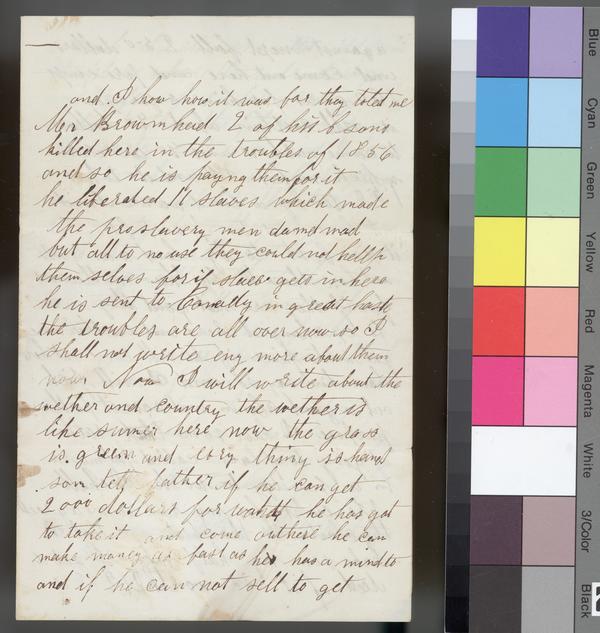 and I how how it was for they toled me
Mr Brownhed 2 of his 6 sons
killed here in the troubles of 1856
and so he is payng them for it
he liberated 11 slaves which made
the proslavery men damd mad
but all to no use they could not hellp
them selves for if slave gets in here
he is sent to in great haste
the troubles are all over now so I
shall not write eny more about them
now Now I will write about the
wether and country the wether is
like sumer here now the grass
is green and evry thing is hand
som tell father if he can get
2000 dollars for what he has got
to take it and come out here he can
make money as fast as he has a mind to
and if he can not sell to get
Blue
Cyan
Green
Yellow
Red
Magenta
White
3/Color
Black